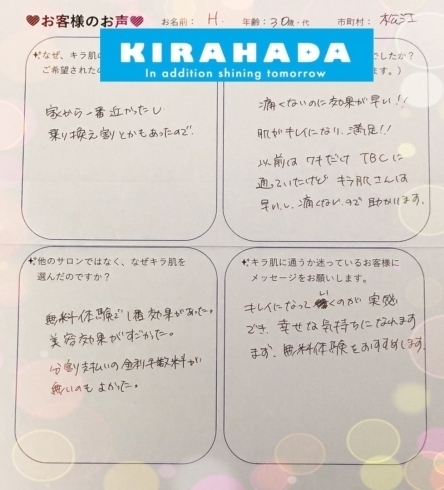 ♥お客様のお声♥ お名前： H. 年齢：30歳・代 市町村：松江
KIRAHADA
In addition shining tomorrow
なぜ、キラ肌
ご希望された
でしたか？
ます。）
家から一番近かったし
乗り換え割とかもあったので。
痛くないのに効果が早い!!
肌がキレイになり、満足!!
以前はワキだけTBCに
通っていたけどキラ肌さんは
早いし、痛くないので助かります。
他のサロンではなく、なぜキラ肌を
選んだのですか？
無料体験で1番効果があった。
美容効果がすごかった。
分割支払いの金利手数料が
無いのもよかった。
キラ肌に通うか迷っているお客様に
メッセージをお願いします。
キレイになっていくのが実感
でき、幸せな気持ちになれます
まず、無料体験をおすすめします。